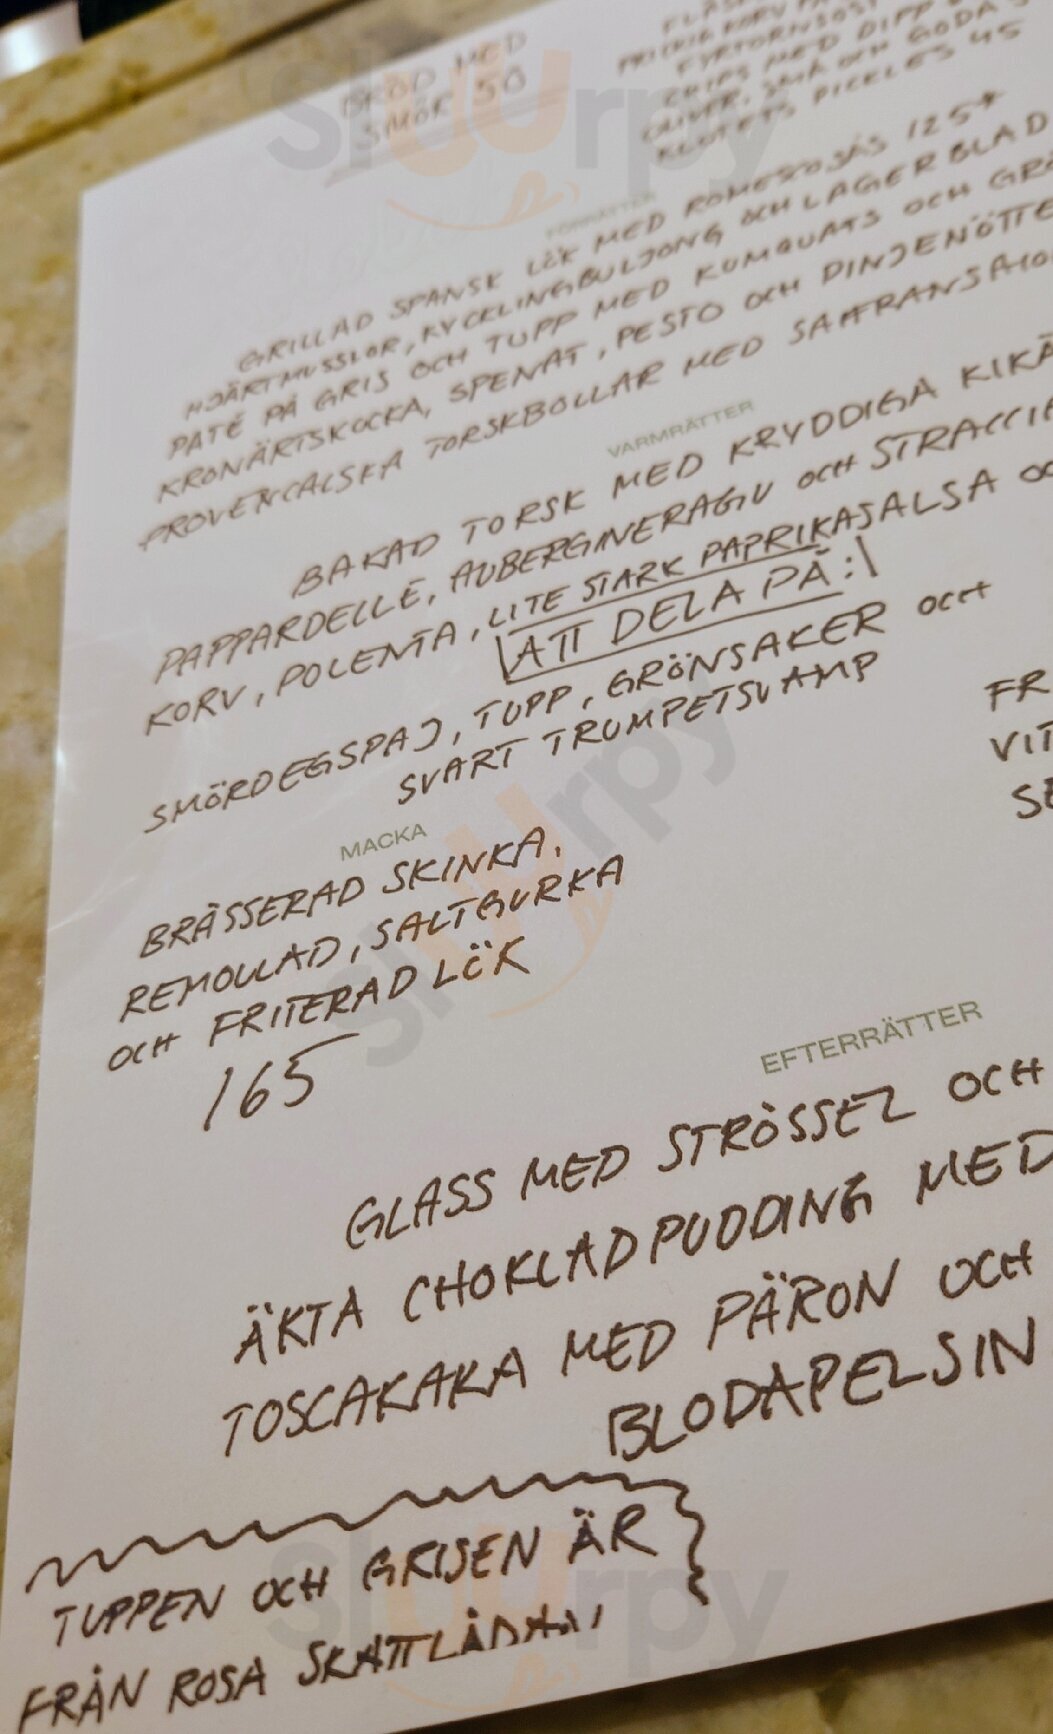 BRÖD MED
SMÖR 50
CHIPS MED DIPP
OLIVER, SMÅ OCH GODA
PICKLES 45
FÖRRÄTTER
GRILLAD SPANSK LÖK MED ROMESCOSÅS 125*
HJÄRTMUSSLOR, KYCKLINGBULJONG OCH LAGERBLAD
PATÉ PÅ GRIS OCH TUPP MED KUMQUATS OCH
KRONÄRTSKOCKA, SPENAT, PESTO OCH PINJENÖTTE
PROVENCALSKA TORSKBOLLAR MED SAFFRANSMA
VARMRÄTTER
BAKAD TORSK MED KRYDDIGA KIKÄ
PAPPARDELLE, AUBERGINERAGU OCH STRACCIE
KORV, POLENTA, LITE STARK PAPRIKASALSA
ATT DELA PÅ:
SMÖRDEGSPAJ, TUPP, GRÖNSAKER OCH
SVART TRUMPETSVAMP
FR
VIT
SE
MACKA
BRÄSSERAD SKINKA,
REMOULAD, SALTGURKA
OCH FRITERAD LÖK
165
EFTERRÄTTER
GLASS MED STRÖSSEL OCH
ÄKTA CHOKLADPUDDING MED
TOSCAKAKA MED PÄRON OCH
BLODAPELSIN
TUPPEN OCH GRISEN ÄR
FRÅN ROSA SKATTLÅDAN!
Sluurpy
Sluurpy
Sluurpy